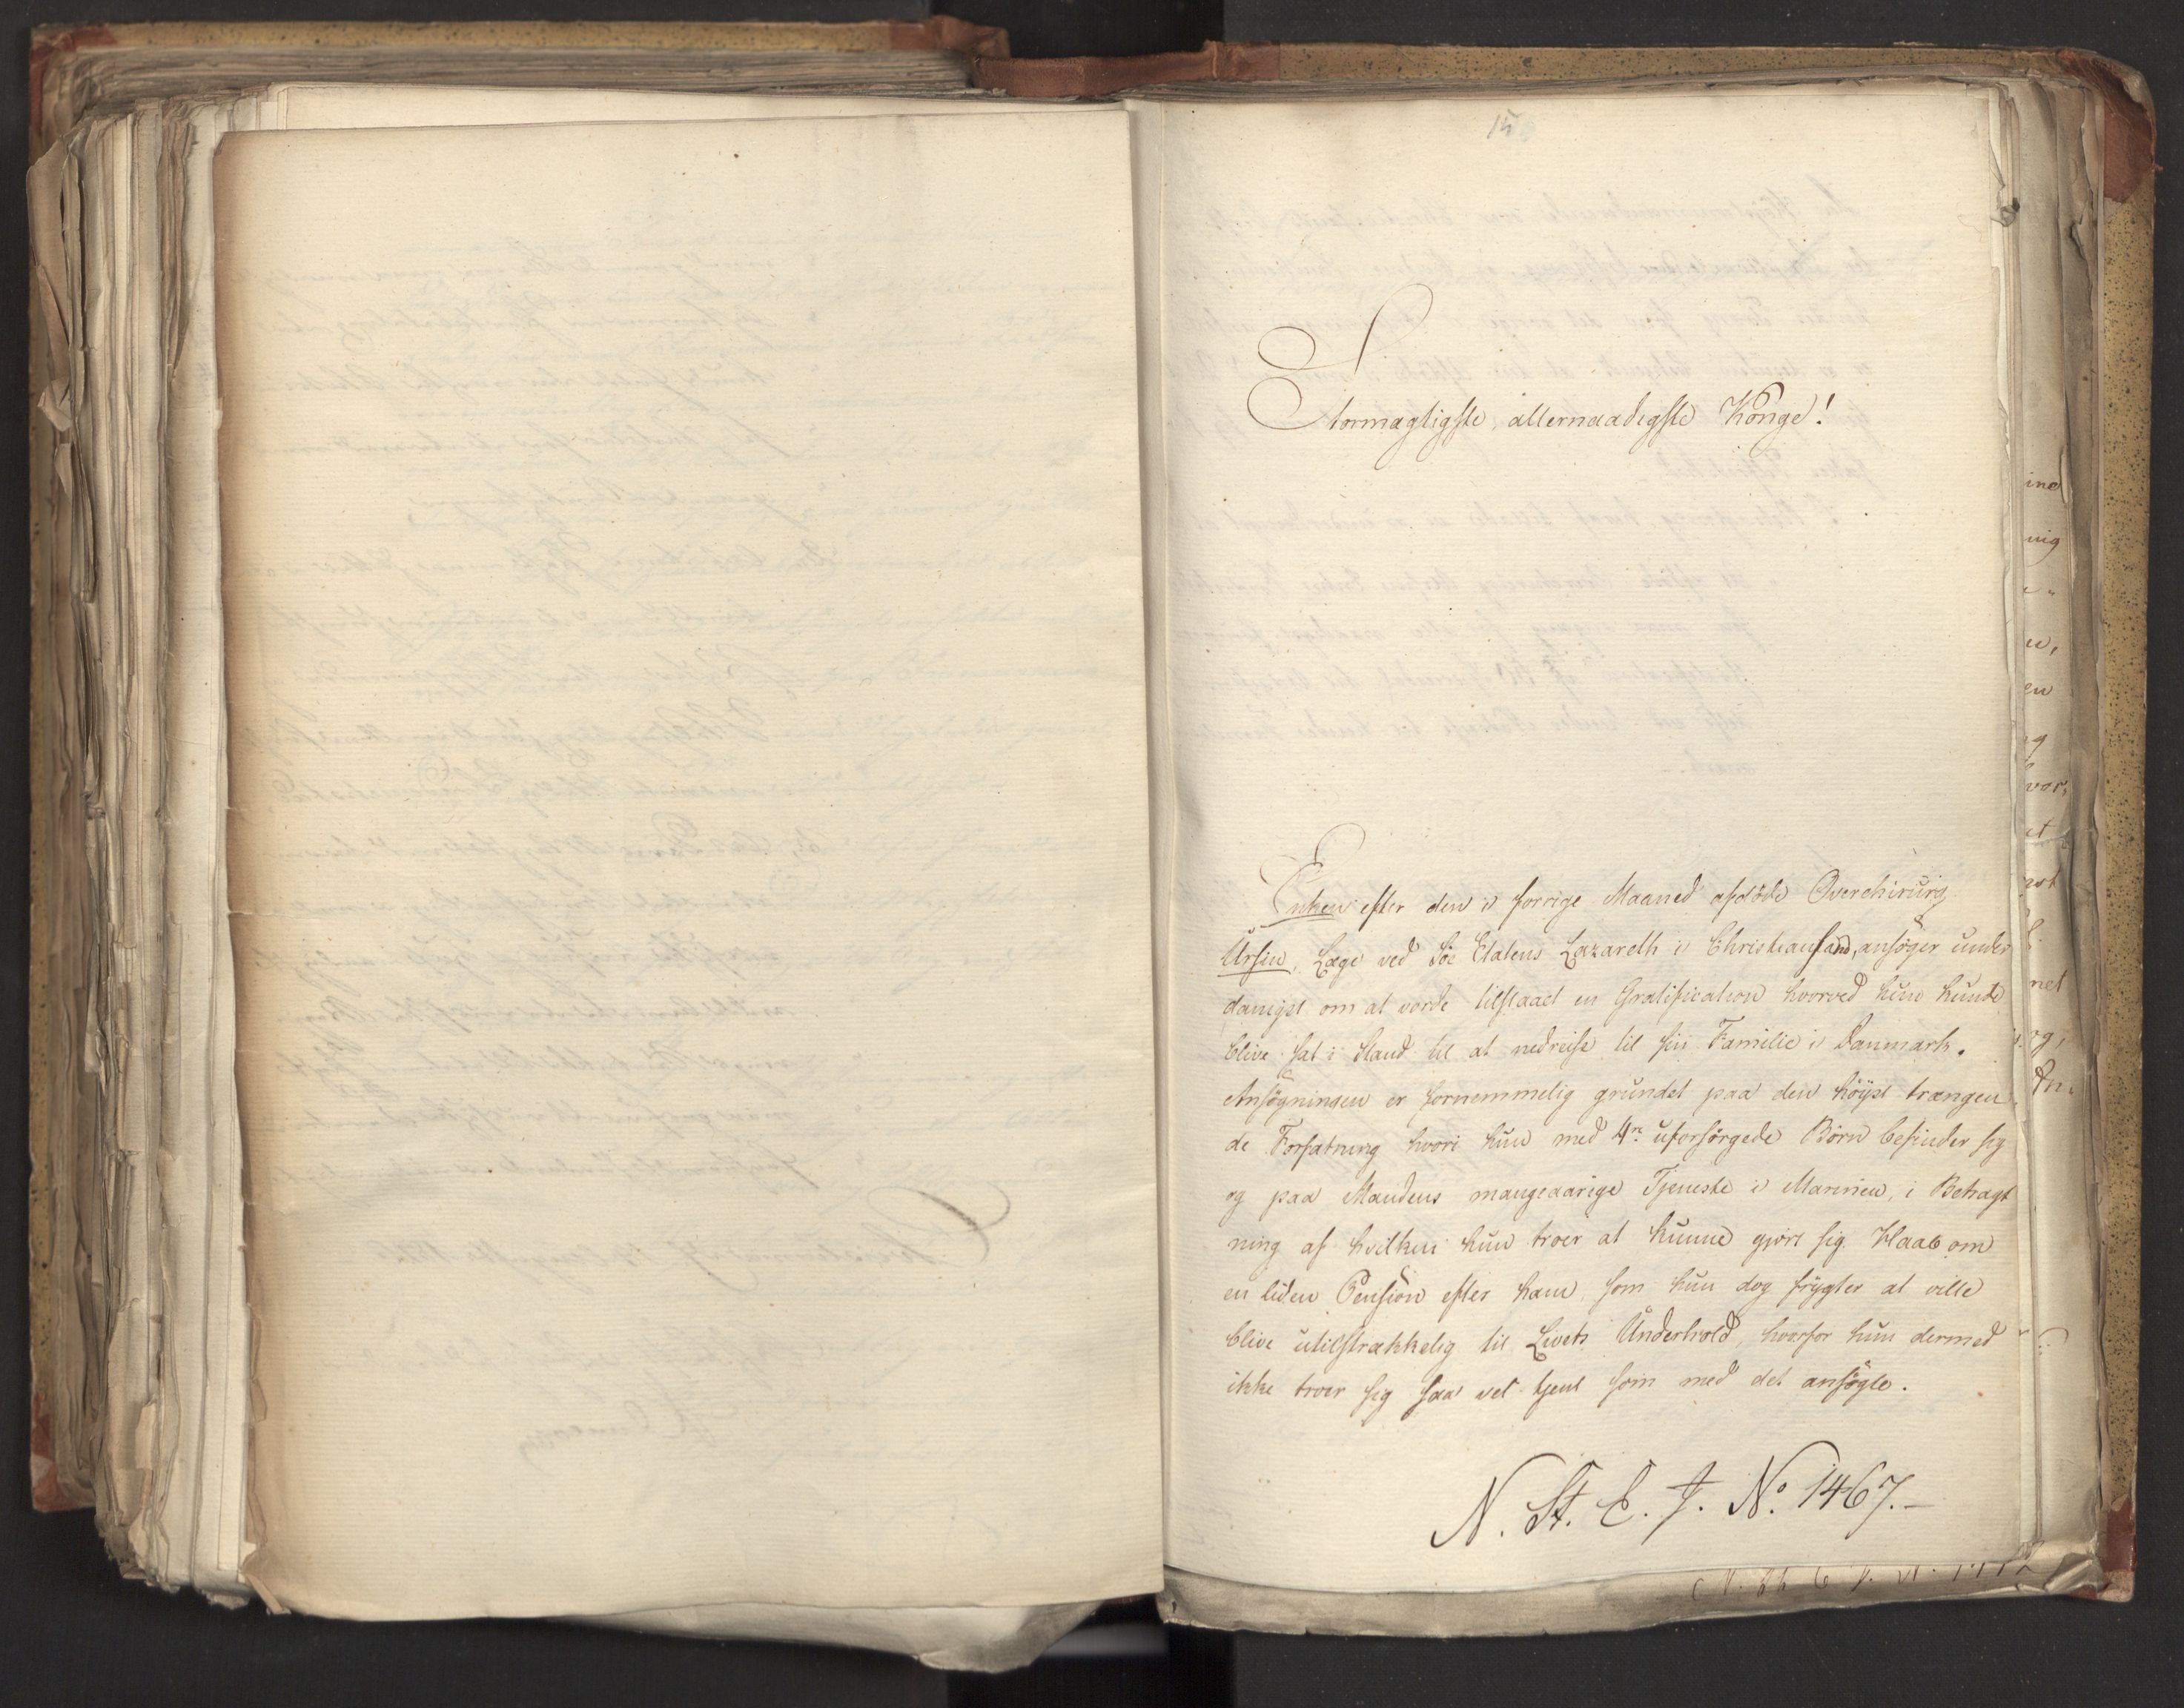 15
Stormægtigste, allernaadigste Konge!
Enken efter den i forrige Maaned afdöde Overchirurg
Ursin, Læge ved Söe Etatens Lazareth i Christiansand, ansöger under
danigst om at vorde tilstaaet en Gratification hvorved hun kunde
blive sat i Stand til at nedreise til sin Familie i Danmark.
Ansögningen er fornemmelig grundet paa den höyst trængen
de Forfatning hvori hun med 4re uforsörgede Börn befinder sig
og paa Mandens mangeaarige Tjeneste i Marinen, i Betragt
ning af hvilken hun troer at kunne gjöre sig Haab om
en liden Pension efter ham, som hun dog frygter at ville
blive utilstrækkelig til Livets Underhold, hvorfor hun dermed
ikke troer sig saa vel tjent som med det ansögte.
N. St. E. J. No. 1467.-